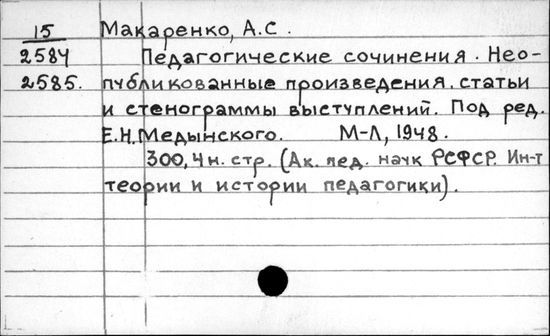 15 Макаренко, А.С.
2584 Педагогические сочинения. Нео-
2585. публикованные произведения, статьи
и стенограммы выступлений. Под ред.
Е.Н. Медынского. М-Л, 1948.
300, 4 н. стр. (Ак. пед. наук РСФСР. Ин-т
теории и истории педагогики).